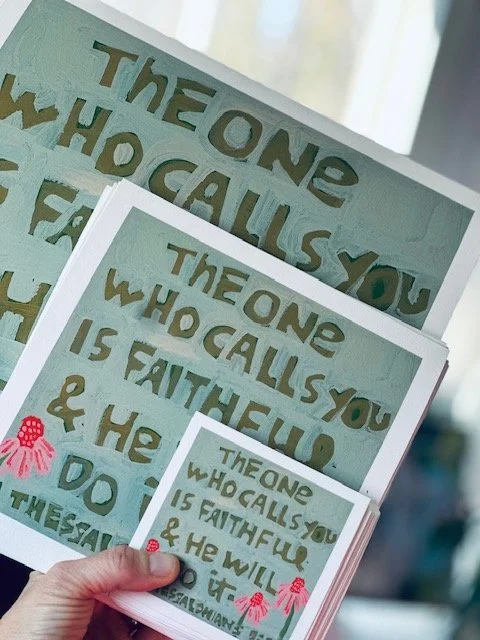 The ONe
WHO CALLS YOU
FA
The ONe
WHO CALLS YOU
IS FAITHFUL
& He
DO
THESSAL
The ONe
WHO CALLS YOU
IS FAITHFUL
& He WILL
DO it.